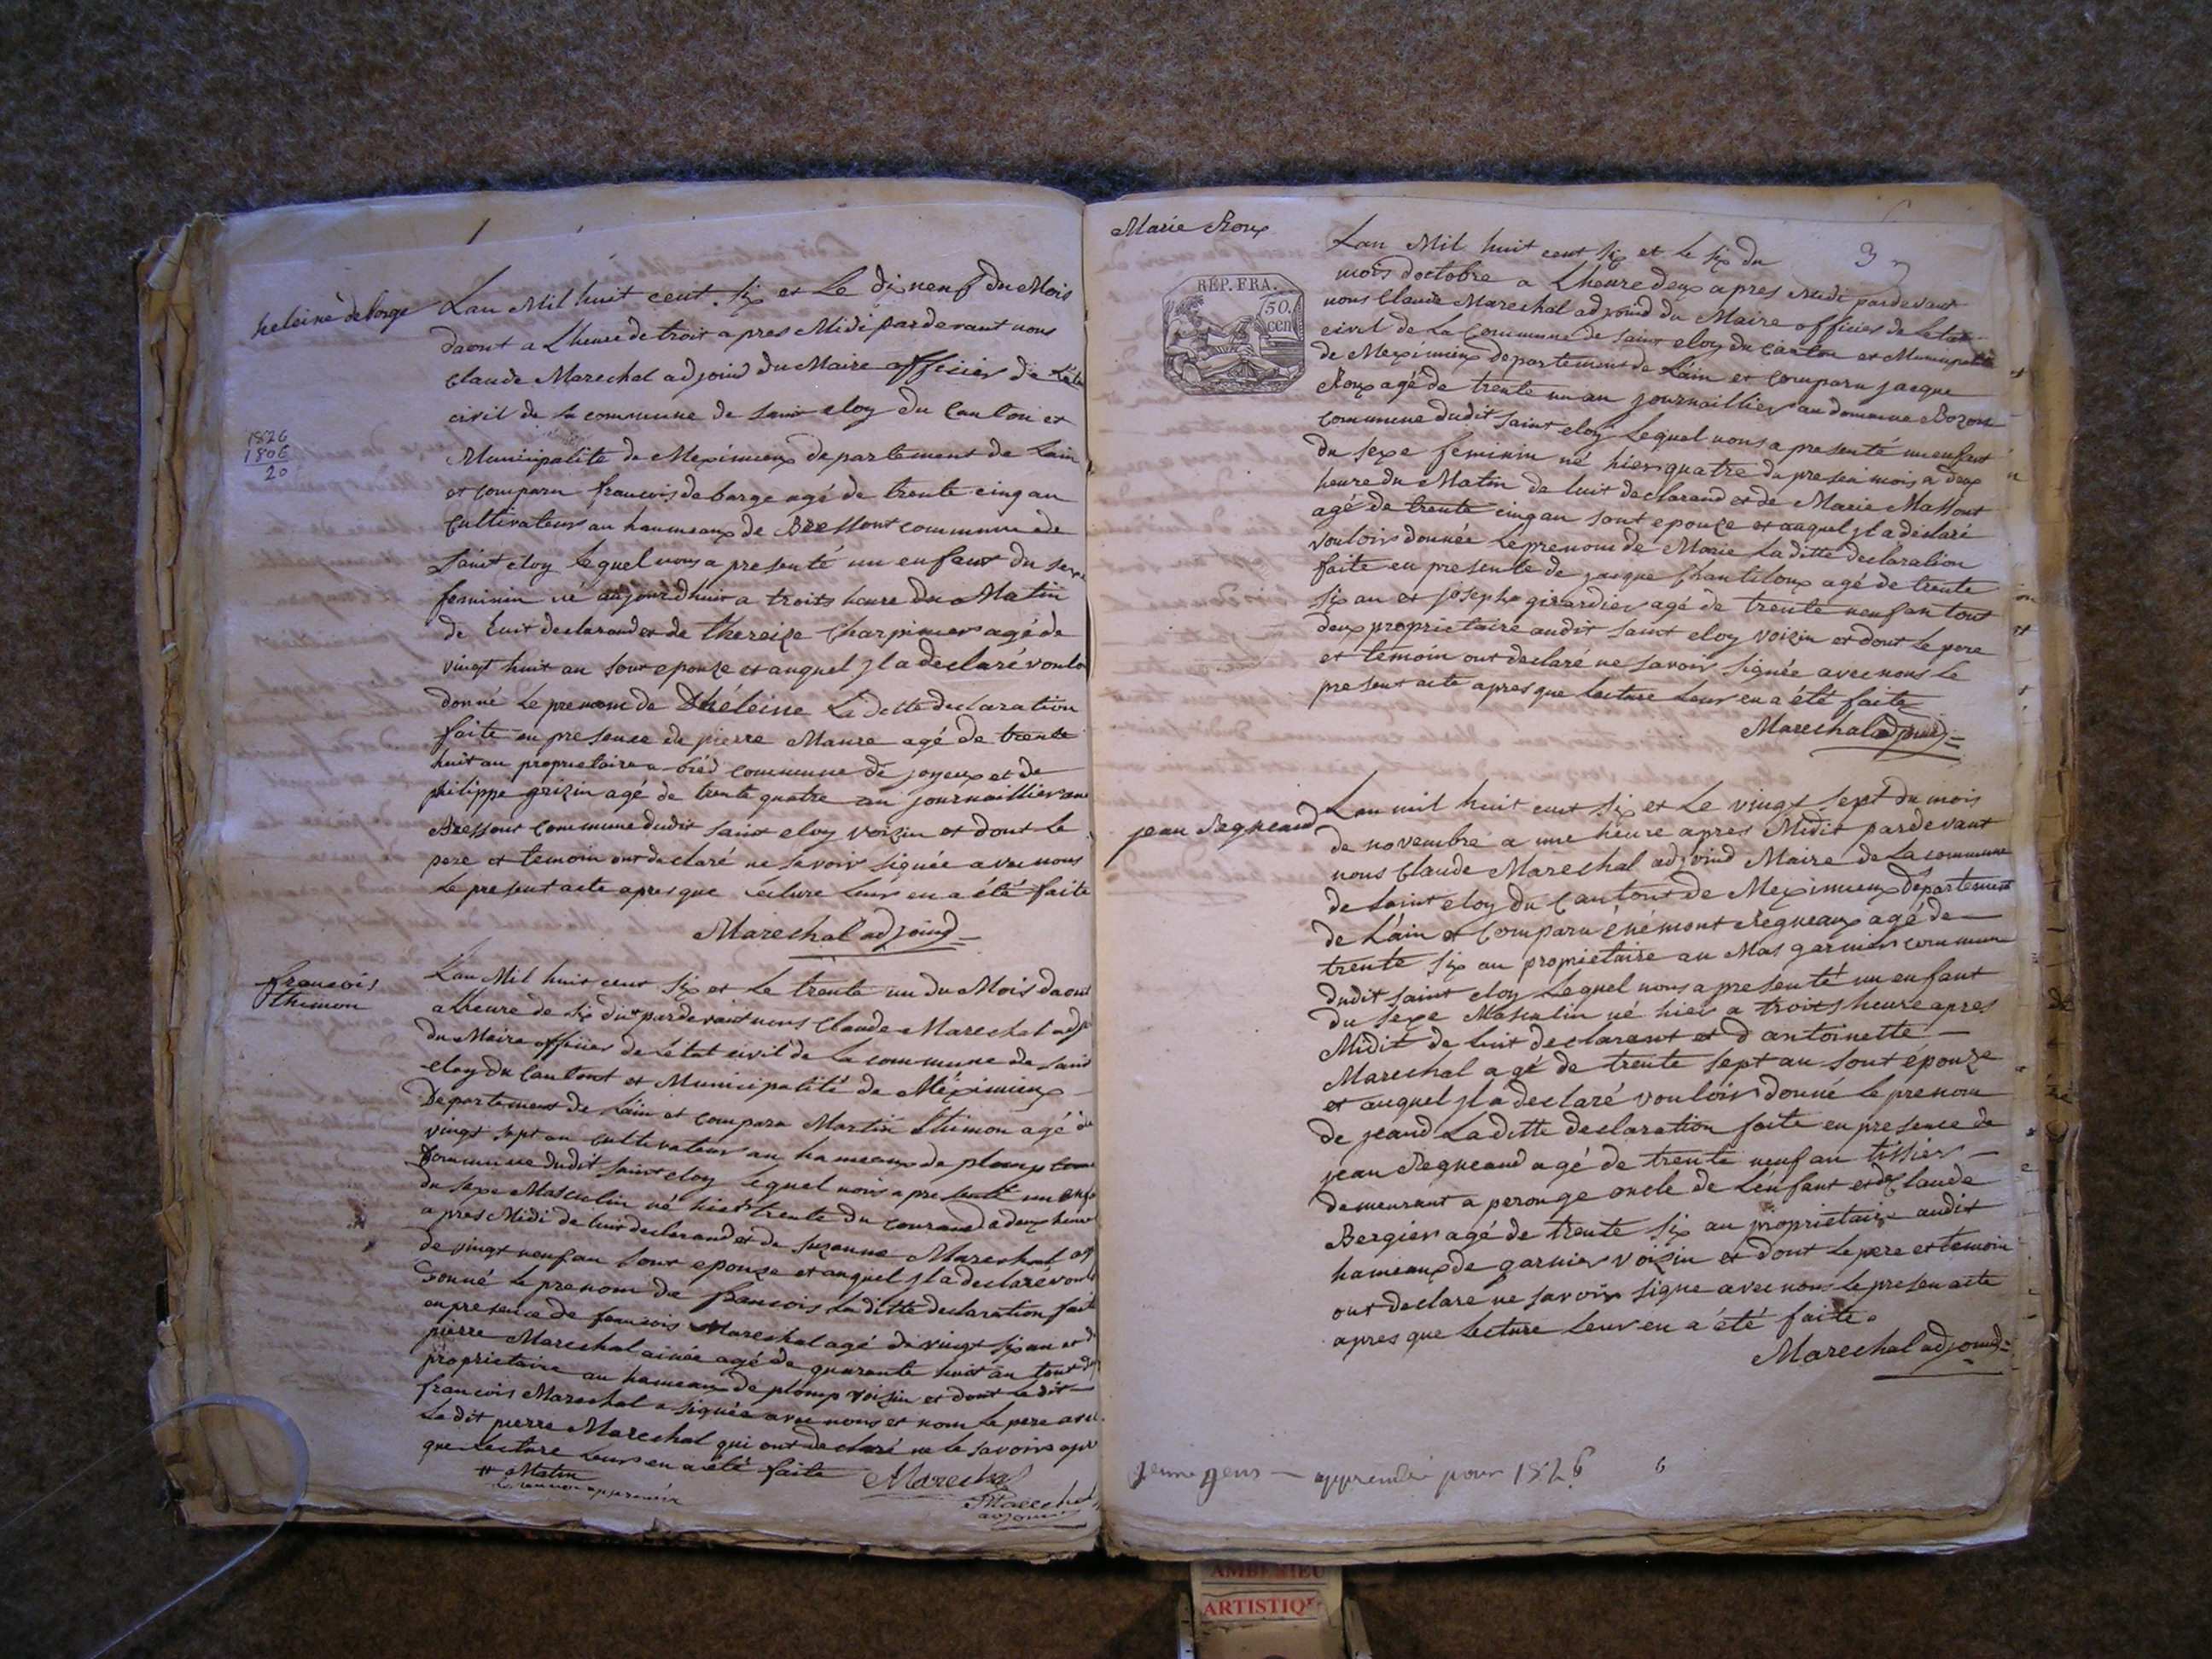 1
heleine debarge
Lan Mil huit cent six et Le dix neuf du Mois
daout a Lheure de trois apres Midi pardevant nous
Claude Marechal adjoind du Maire officier de Léta
civil de la commune de saint eloy du Canton et
1826
1806
20
Municipalité de Meximieux departement de Lain
et comparu francois debarge agé de trente cinq an
Cultivateur au haumeaux de Bressont commune de
saint eloy Lequel nous a presenté un enfant du sexe
feminin né aujourdhuit a troits heure du Matin
de Luit declarand et de thereize Charpinier agé de
vingt huit an sont epouze et auquel jl a declaré voulo
donné Le prenom de héleine La ditte declaration
faite en presence de pierre Maure agé de trente
huit an proprietaire a bréd commune de joyeux et de
philippe grizin agé de trente quatre an journaillier au
Bressont Commune dudit saint eloy voizin et dont Le
pere et temoin ont declaré ne savoir signée avec nous
Le present acte apres que Lecture Leur en a été faite
Marechal adjoind
francois
thimon
Lan Mil huit cent six et Le trente un du Mois daout
a Lheure de six du# pardevant nous Claude Marechal adjo
du Maire officier de Létat civil de La commune de saint
eloy du Cantont et Municipalité de Méximieux
Departement de Lain et comparu Martin thimon agé de
vingt sept an cultivateur au hameaux de plomp
Commune dudit saint eloy Lequel nous a presenté un enfa
du sexe Masculin né hier trente du courand a deux heure
apres Midi de Luit declarand et de suzanne Marechal agé
de vingt neuf an sont epouze et auquel jl a declaré voul
donné Le prenom de francois La ditte declaration faite
en presence de francois Marechal agé de vingt six an et de
pierre Marechal ainée agé de quarante huit an tout d
proprietaire au hameaux de plomp voisin et dont Le dit
francois Marechal a signée avec nous et nom Le pere avec
Le dit pierre Marechal qui ont declaré ne Le savoir apr
que Lecture Leur en a été faite
# Matin
Marechal
Marechal
adjoind
Marie Roux
3
RÉP. FRA.
50
cen
Lan Mil huit cent six et Le six du
mois doctobre a Lheure deux apres Midi pardevant
nous Claude Marechal adjoind du Maire officier de Létat
civil de La Commune de saint eloy du Canton et Municipalité
de Meximieux departement de Lain et comparu jacque
Roux agé de trente un an journaillier au domaine Bozont
commune dudit saint eloy Lequel nous a presenté un enfant
du sexe feminin né hier quatre du presen mois a deux
heure du Matin de Luit declarand et de Marie Massont
agé de trente cinq an sont epouze et auquel jl a déclaré
vouloir donnée Le prenom de Marie La ditte declaration
faite en presente de jacque Chantiloux agé de trente
six an et joseph girardier agé de trente neuf an tout
deux proprietaire audit saint eloy voizin et dont Le pere
et temoin ont declaré ne savoir signée avec nous Le
present acte apres que Lecture Leur en a été faite
Marechal adjoind
jean Regneaud
Lan mil huit cent six et Le vingt sept du mois
de novembre a une heure apres Midit pardevant
nous Claude Marechal adjoind Maire de La commune
de Saint eloy du Cantont de Meximieux Département
de Lain et Comparu énémont Regneaux agé de
trente six an proprietaire au Mas garnier commune
dudit saint eloy Lequel nous a presenté un enfant
du sexe Masculin né hier a troits heure apres
Midit de Luit declarant et d antoinette
Marechal agé de trente sept an sont épouze
et auquel jl a declaré vouloir donné Le prenom
de jeand La ditte declaration faite en presence de
jean Regneaud agé de trente neuf an tissier
demeurant a perouge oncle de Lenfant et de Claude
Bergier agé de trente six an proprietaire audit
hameaux de garnier voizin et dont Le pere et témoin
ont declare ne savoir signe avec nous Le presen acte
apres que Lecture Leur en a été faite.
Marechal adjoind
jeune gens — pour 1826
6
AMBERIEU
ARTISTIQ